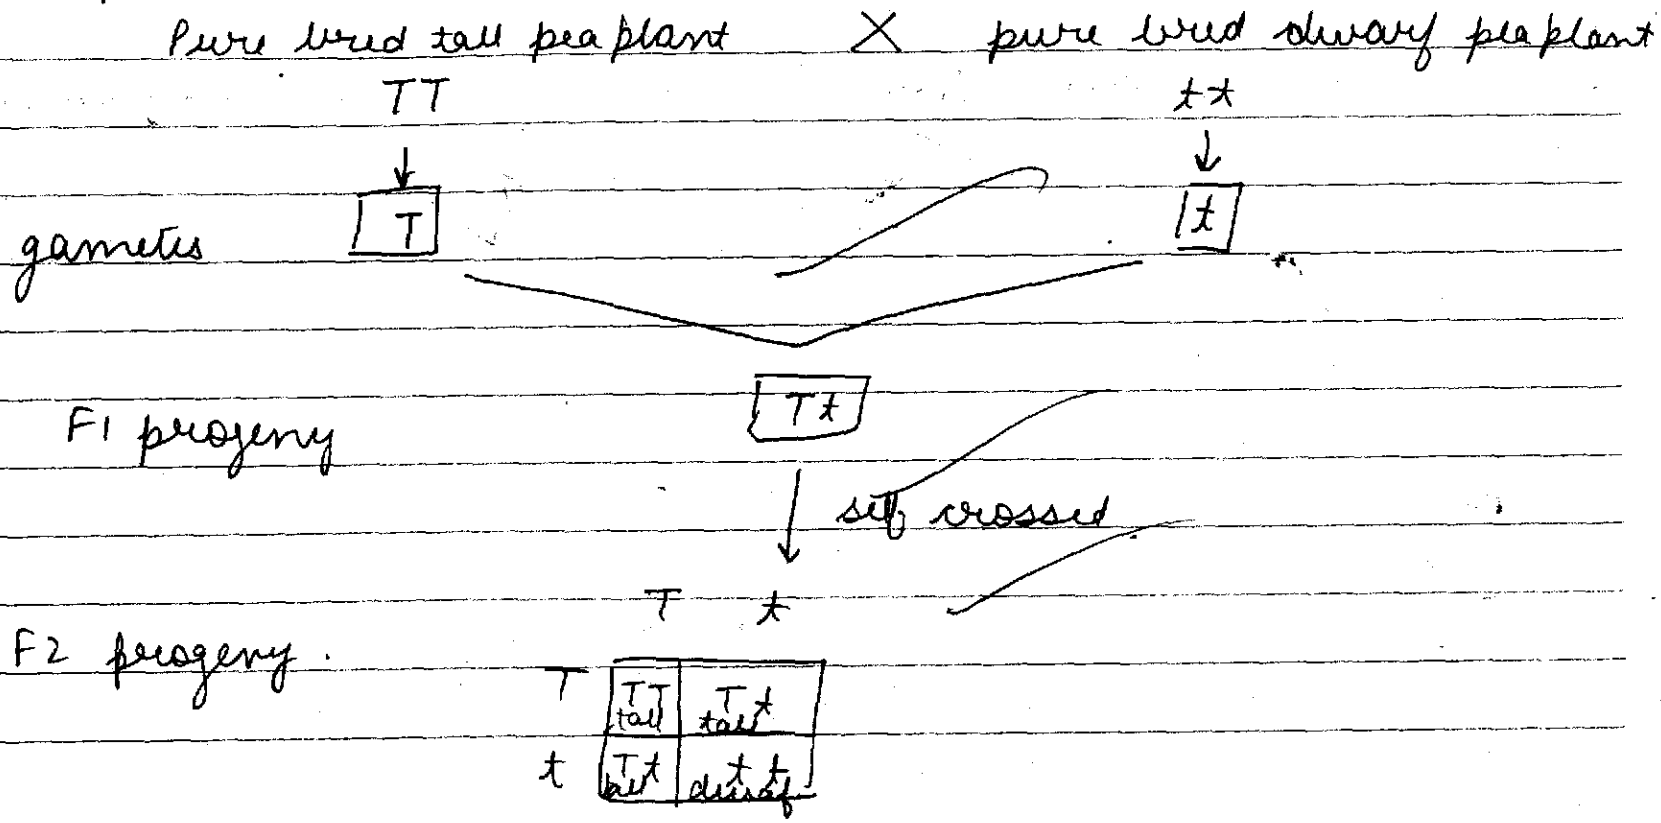 Pure bred tall pea plant X pure bred dwarf pea plant
TT tt
gametes T t
F1 progeny Tt
self crossed
T t
F2 progeny.
T TT Tt
tall tall
t Tt tt
tall dwarf